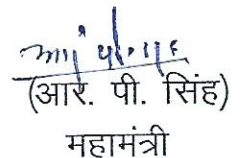 (आर. पी. सिंह)
महामंत्री